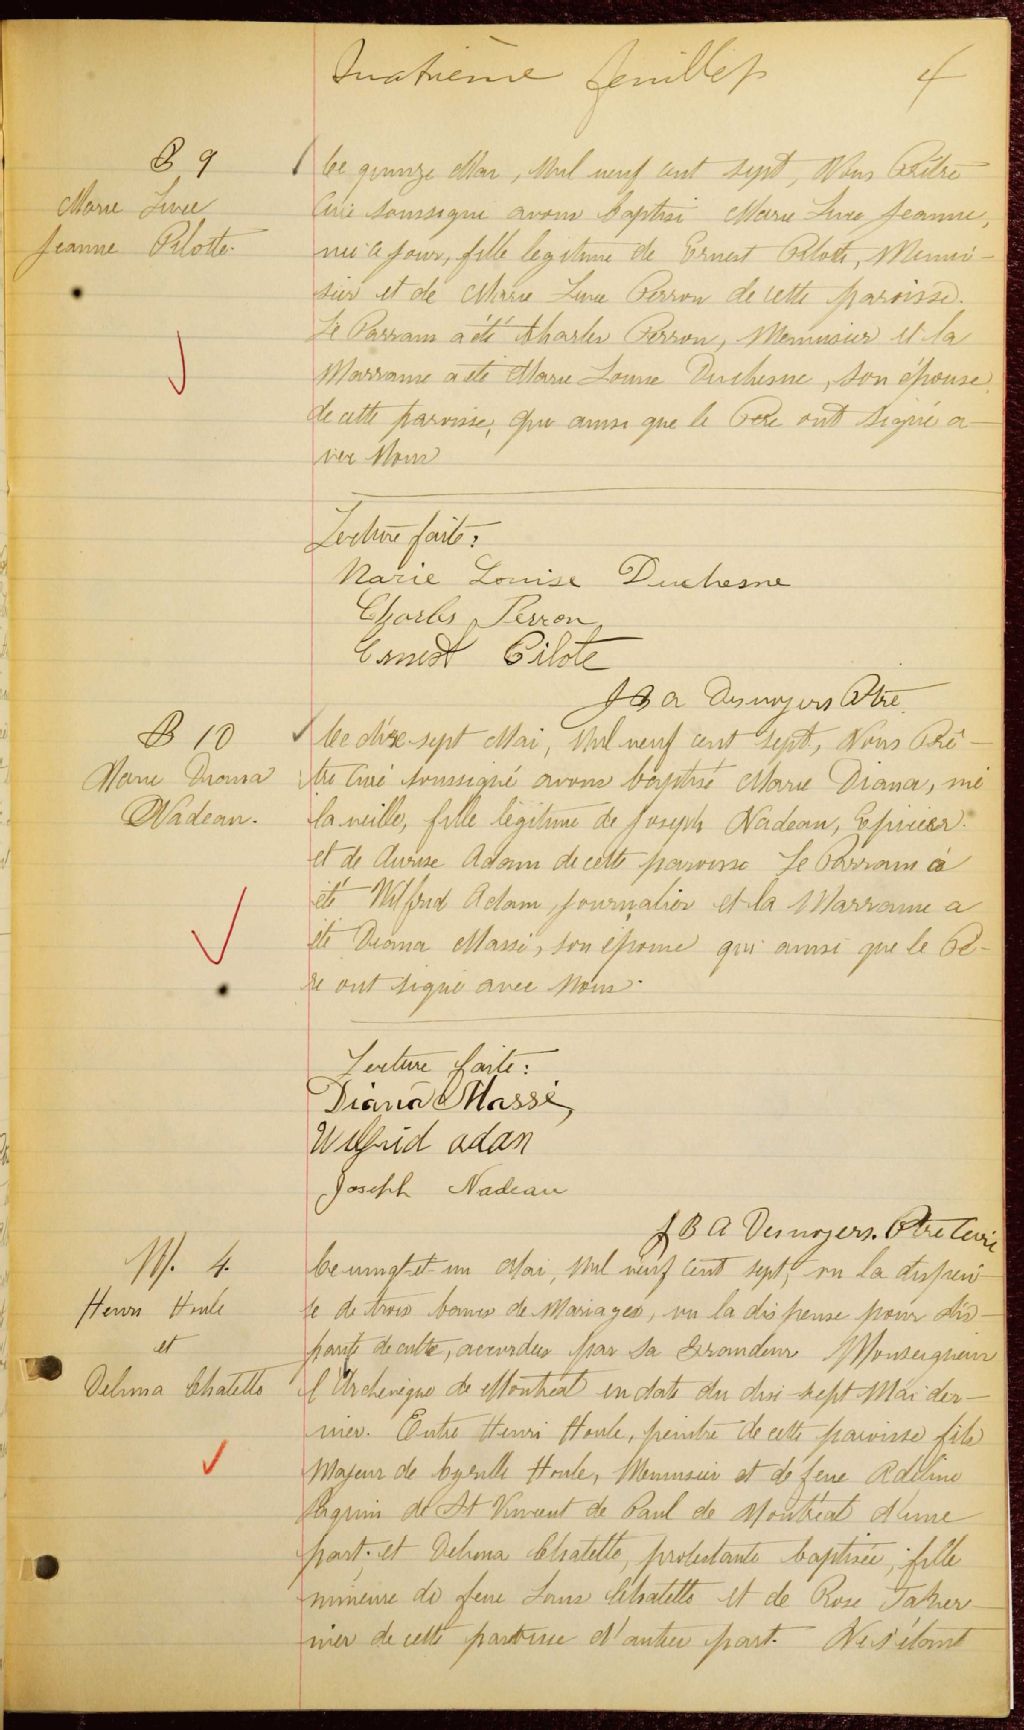 Quatrième feuillet 4
B 9
Marie Livie
Jeanne Pilotte.
Ce quinze Mai, Mil neuf cent sept, Nous Prêtre
Curé soussigné avons baptisé Marie Livie Jeanne,
née ce jour, fille légitime de Ernest Pilotte, Menui-
sier et de Marie Livie Perron de cette paroisse.
Le Parrain a été Charles Perron, Menuisier et la
Marraine a été Marie Louise Duchesne, son épouse,
de cette paroisse, qui ainsi que le Père ont signé a-
vec Nous
Lecture faite:
Marie Louise Duchesne
Charles Perron
Ernest Pilote
J B A Desnoyers Ptre
B 10
Marie Diana
Nadeau.
Ce dix-sept Mai, Mil neuf cent sept, Nous Prê-
tre Curé soussigné avons baptisé Marie Diana, née
la veille, fille légitime de Joseph Nadeau, Epicier
et de Adam de cette paroisse Le Parrain a
été Wilfrid Adam, journalier et la Marraine a
été Diana Massé, son épouse qui ainsi que le Pè-
re ont signé avec Nous.
Lecture faite:
Diana Massé,
Wilfrid adan
Joseph Nadeau
J B A Desnoyers. Ptre Curé
M. 4.
Henri Houle
et
Delima Chatelle
Ce vingt-et-un Mai, Mil neuf cent sept, vu la dispen-
se de trois bancs de Mariages, vu la dispense pour dis-
parité de culte, accordées par Sa Grandeur Monseigneur
l'Archevêque de Montréal en date du dix-sept Mai der-
nier. Entre Henri Houle, peintre de cette paroisse fils
Majeur de Cyrille Houle, Menuisier et de feue Adeline
Paquin de St Vincent de Paul de Montréal d'une
part. et Delima Chatelle, protestante baptisée, fille
mineure de feue Louis Chatelle et de Rose
nier de cette paroisse d'autre part. Ne s'étant